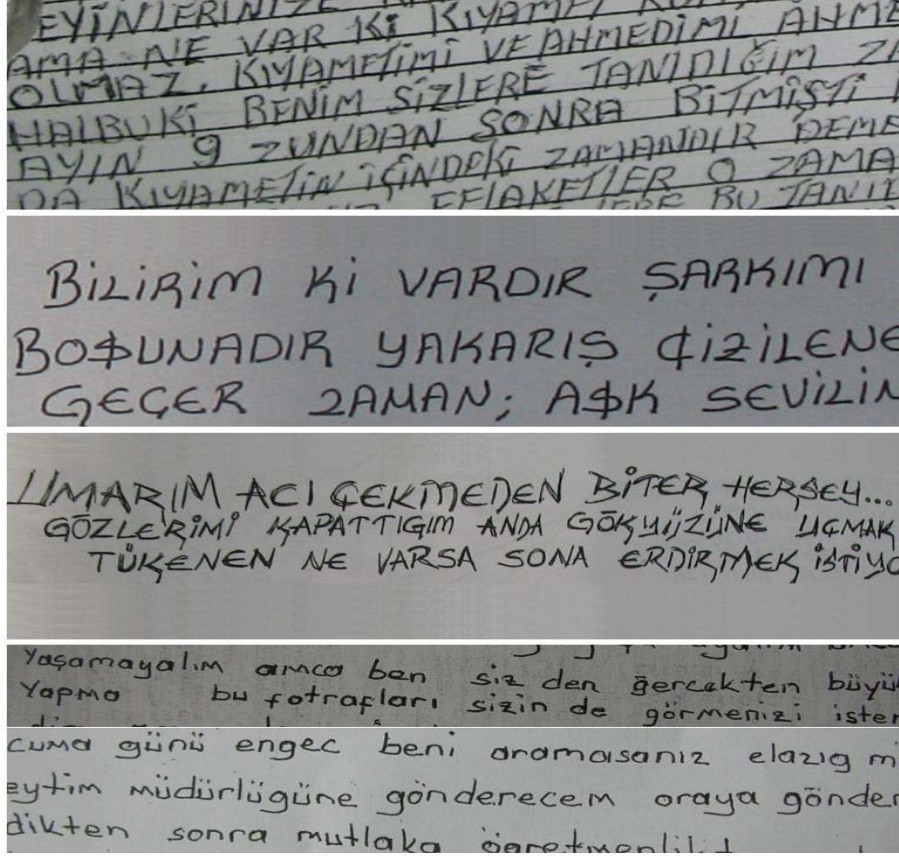 EYİNLERİNİZE
AMA NE VAR Kİ KIYAMET
OLMAZ. KIYAMETİMİ VE AHMEDİMİ AHME
HALBUKİ BENİM SİZLERE TANIDIĞIM ZA
AYIN 9 ZUNDAN SONRA BİTMİŞTİ
DA KIYAMETİN İÇİNDEKİ ZAMANDIR DEME
EFLAKETLER O ZAMA
BU TANI
BİLİRİM Kİ VARDIR ŞARKIMI
BOŞUNADIR YAKARIŞ ÇİZİLENE
GEÇER ZAMAN; AŞK SEVİLİN
UMARIM ACI ÇEKMEDEN BİTER HERŞEY...
GÖZLERİMİ KAPATTIGIM ANDA GÖKYÜZÜNE UÇMAK
TÜKENEN NE VARSA SONA ERDİRMEK İSTİYO
Yaşamayalım amca ben siz den gerçekten büyü
Yapma bu fotrafları sizin de görmenizi ister
cuma günü engec beni aramasanız elazıg mi
eytim müdürlügüne gönderecem oraya gönder
dikten sonra mutlaka ögretmenlik